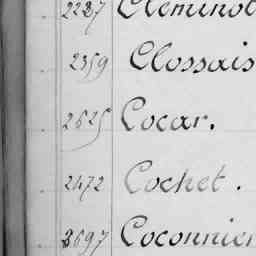 2287 Cleminot
2359 Clossais
2525 Cocar.
2472 Cochet.
3697 Coconnier